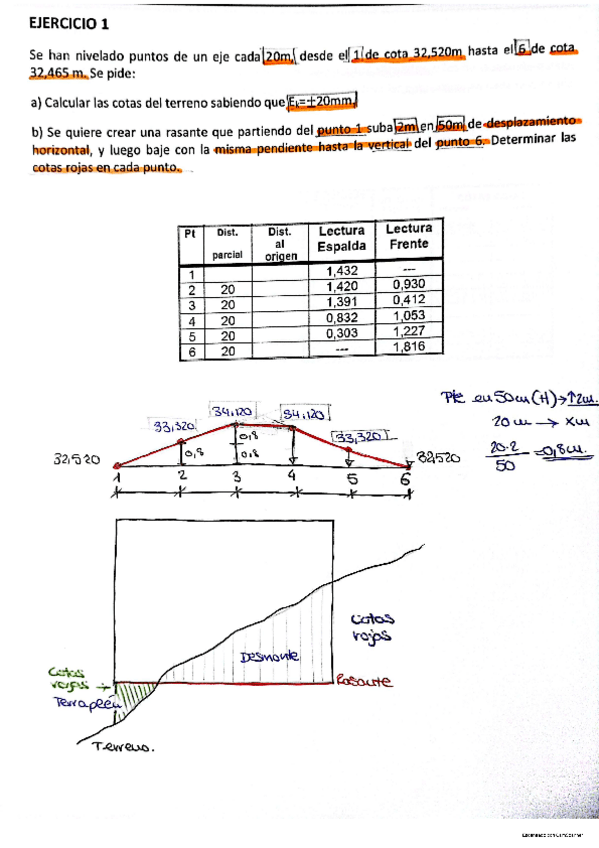 EJERCICIO 1
Se han nivelado puntos de un eje cada 20m, desde el 1 de cota 32,520m hasta el 6 de cota
32,465 m. Se pide:
a) Calcular las cotas del terreno sabiendo que Ek=±20mm.
b) Se quiere crear una rasante que partiendo del punto 1 suba 2m en 50m de desplazamiento
horizontal, y luego baje con la misma pendiente hasta la vertical del punto 6. Determinar las
cotas rojas en cada punto.
Pt Dist. parcial Dist. al origen Lectura Espalda Lectura Frente
1 1,432 ---
2 20 1,420 0,930
3 20 1,391 0,412
4 20 0,832 1,053
5 20 0,303 1,227
6 20 --- 1,816
Pte en 50m (H) → ↑2m.
20m → Xm
20·2
50
=0,8m.
34,120 34,120
33,320 33,320
0,8 0,8 0,8
32,520 32,520
1 2 3 4 5 6
Cotas
rojas
Desmonte
Cotas
rojas →
Rasante
Terraplén
Terreno.